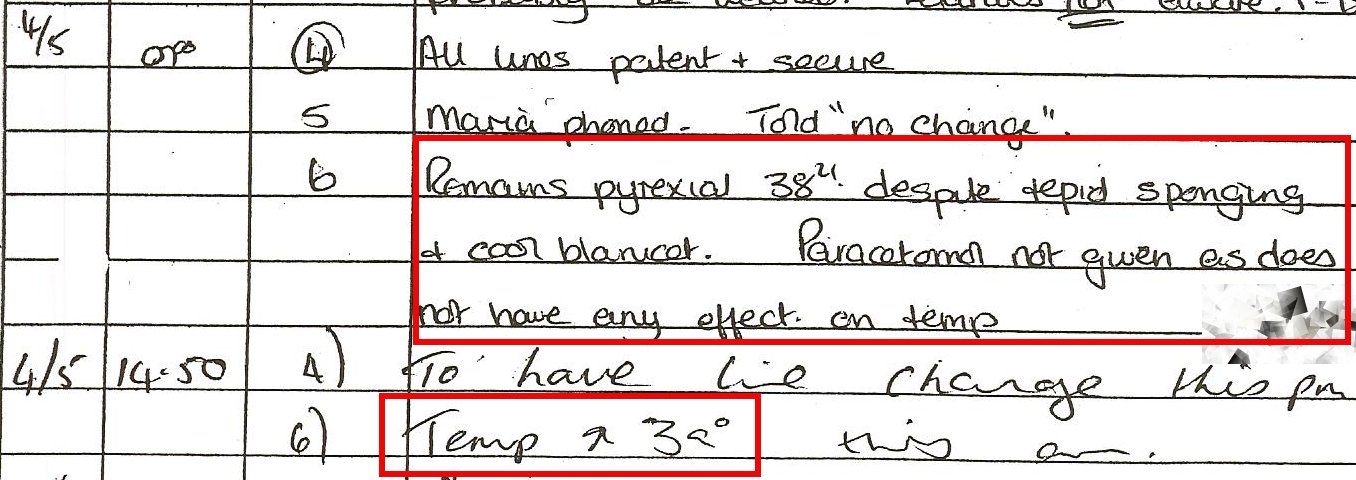 not
4/5 4 All lines patent + secure
5 Maria phoned. Told "no change".
6 Remains pyrexial 38²¹. despite tepid sponging
+ cool blanket. Paracetamol not given as does
not have any effect. on temp
4/5 14.50 4) To have line change this pm
6) Temp 39° this am.